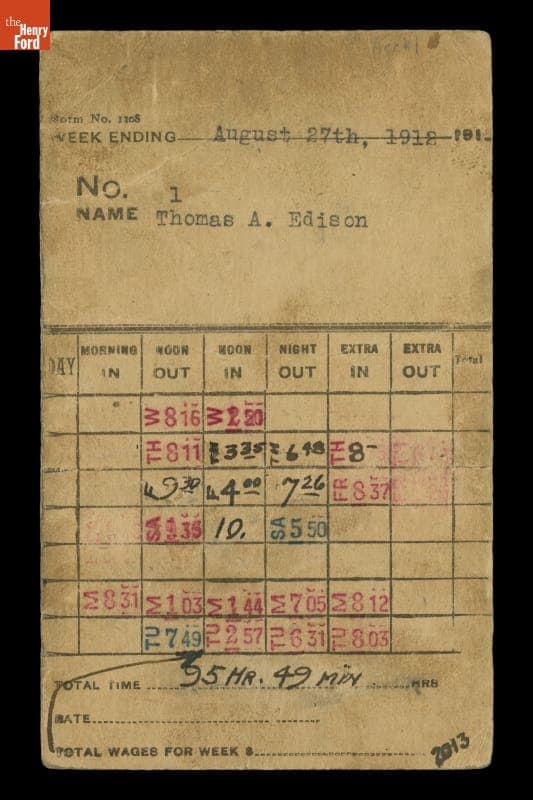 the
Henry
Ford
Form No. 1108
WEEK ENDING August 27th, 1912 191
No. 1
NAME Thomas A. Edison
DAY MORNING IN NOON OUT NOON IN NIGHT OUT EXTRA IN EXTRA OUT Total
W 8 16 W 2 20
TH 8 11 3 35 6 48 TH 8-
F 9 30 F 4 00 7 26 FR 8 37
SA 10. SA 5 50
M 8 31 M 1 03 M 1 44 M 7 05 M 8 12
TU 7 49 TU 2 57 TU 6 31 TU 8 03
TOTAL TIME 95 HR. 49 MIN HRS
RATE
TOTAL WAGES FOR WEEK $ 2013